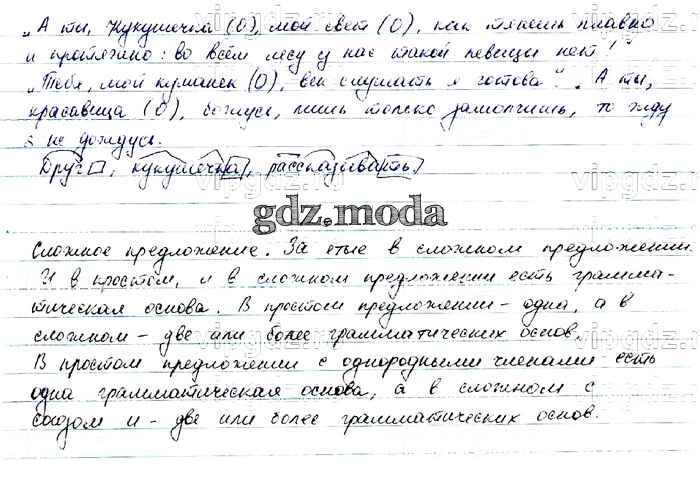 "А ты, Кукушечка (О), мой свет (О), как тянешь плавно
и протяжно: во всём лесу у нас такой певицы нет!"
"Тебя, мой куманек (О), век слушать я готова". "А ты,
красавица (О), божусь, лишь только замолчишь, то жду
я не дождусь.
Друг, кукушечка, рассказывать.
gdz.moda
Сложное предложение. Запятые в сложном предложении.
И в простом, и в сложном предложении есть грамма-
тическая основа. В простом предложении - одна, а в
сложном - две или более грамматических основ.
В простом предложении с однородными членами есть
одна грамматическая основа, а в сложном с
союзом и - две или более грамматических основ.